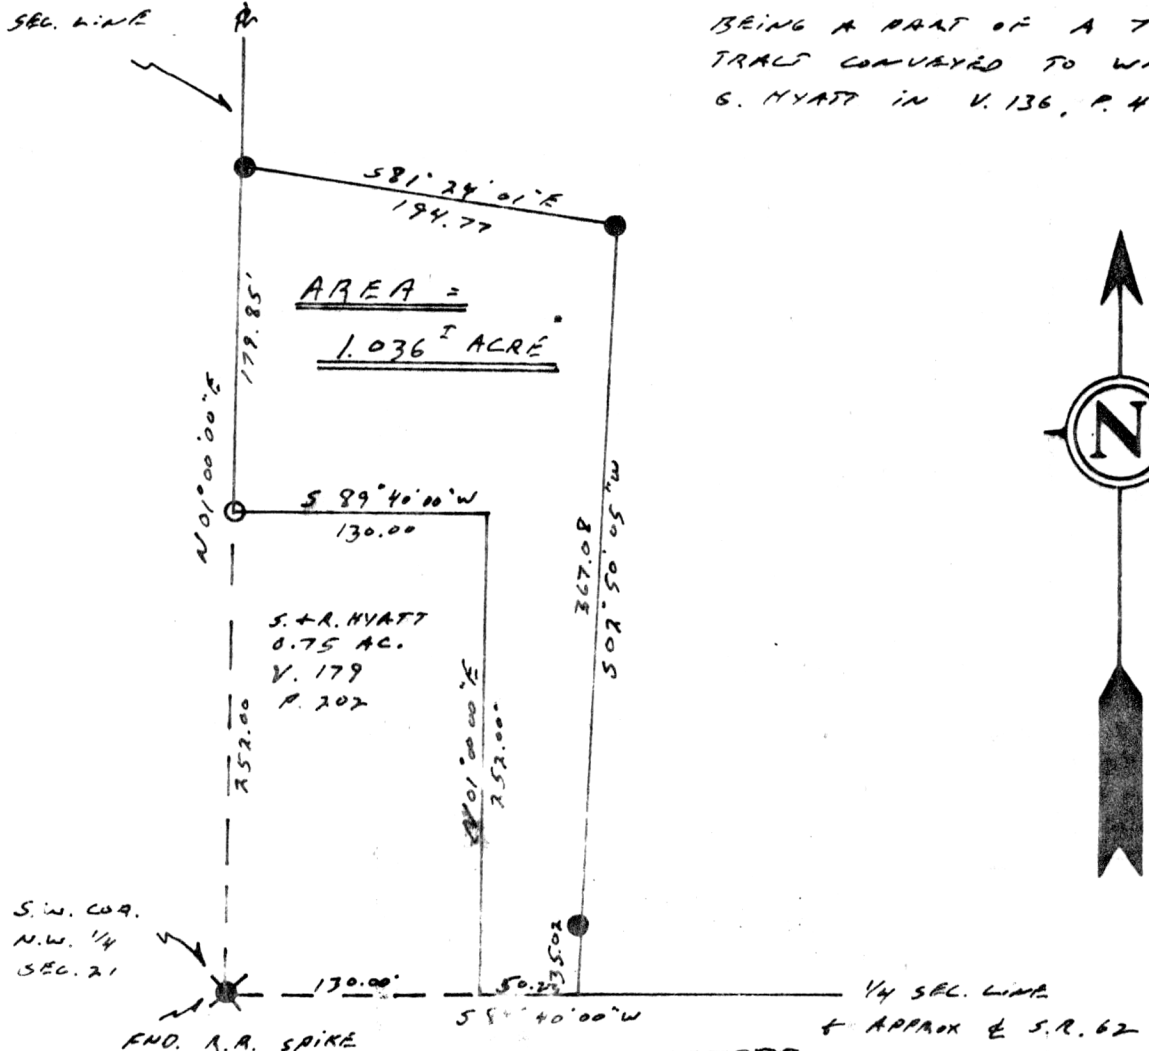 SEC. LINE
BEING A PART OF A 7
TRACT CONVEYED TO W
G. HYATT IN V. 136, P. 4
S 81° 24' 01" E
194.77
AREA =
1.036 ACRE
179.85'
N 01° 00' 00" E
S 89° 40' 00" W
130.00
367.08
S 02° 50' 05" W
S. & R. HYATT
0.75 AC.
V. 179
P. 202
252.00
N 01° 00' 00" E
252.00'
N
S.W. COR.
N.W. 1/4
SEC. 21
35.02
130.00'
40' 00" W
1/4 SEC. LINE
& APPROX ℄ S.R. 62
FND. R.R. SPIKE